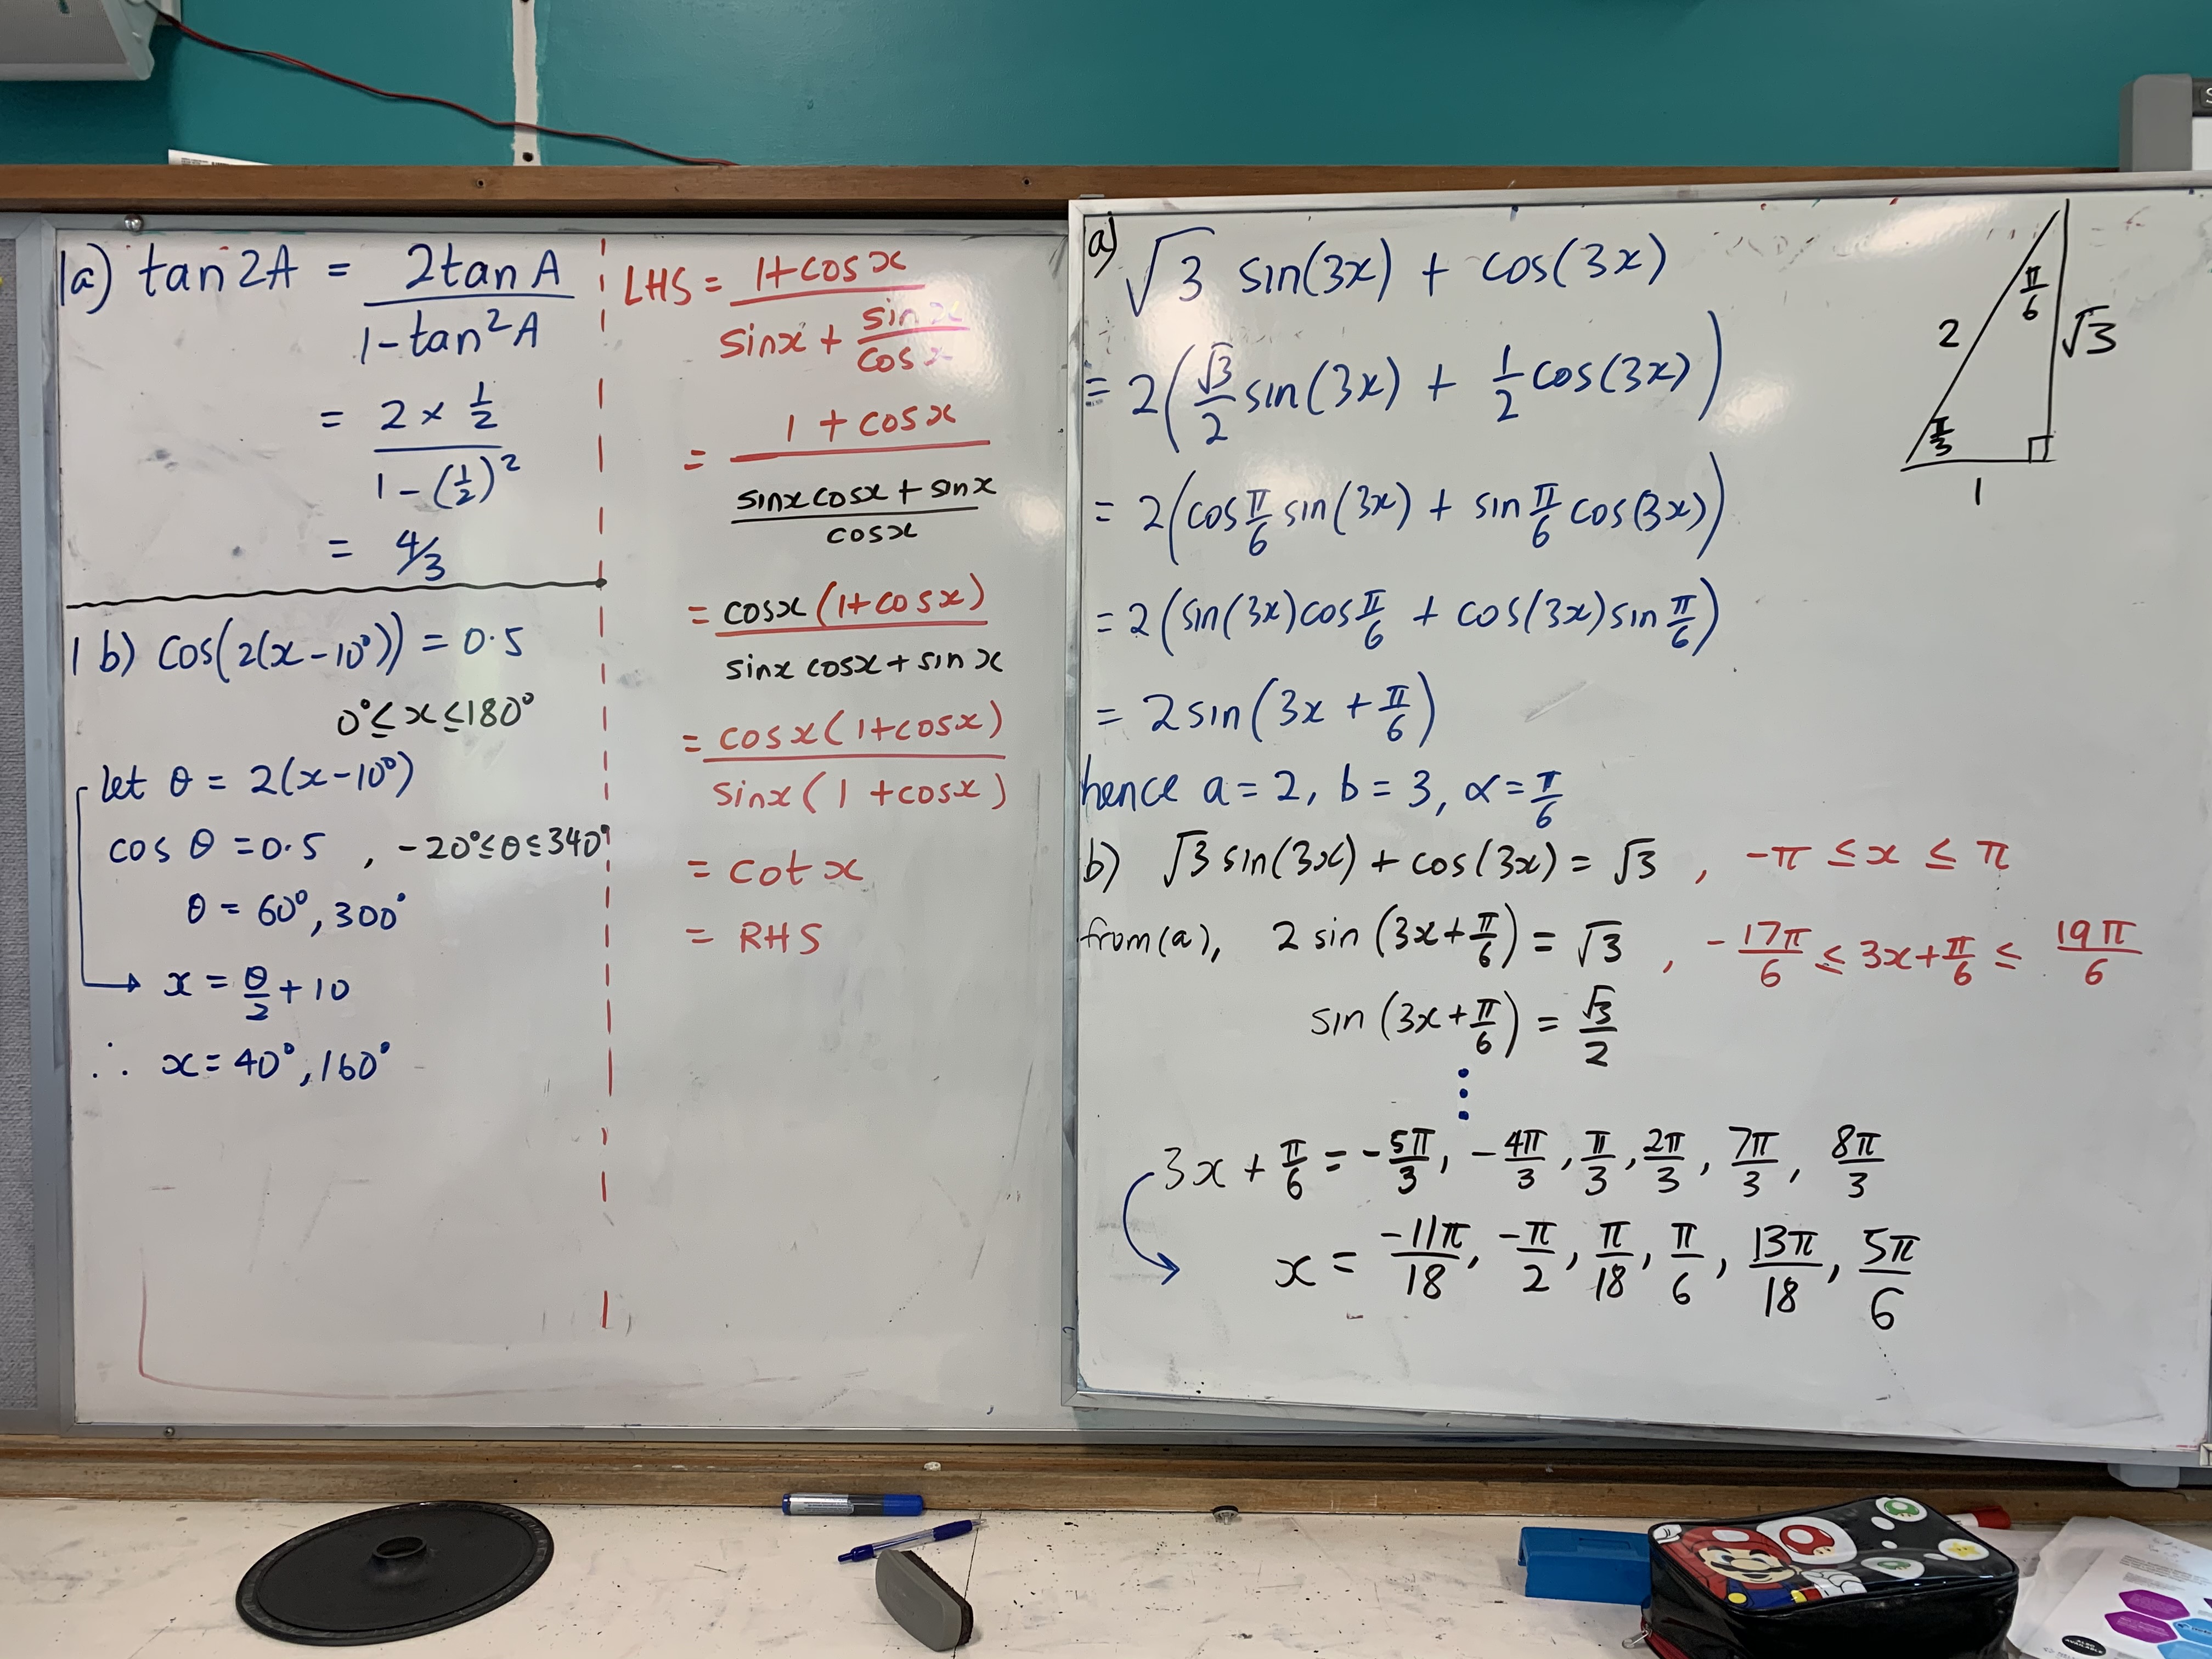 1a) tan 2A = 2tan A / 1 - tan²A
= 2 × 1/2 / 1 - (1/2)²
= 4/3
1 b) cos(2(x - 10°)) = 0.5
0° ≤ x ≤ 180°
let θ = 2(x - 10°)
cos θ = 0.5 , -20° ≤ θ ≤ 340°
θ = 60°, 300°
x = θ/2 + 10
∴ x = 40°, 160°
LHS = 1 + cos x / sin x + sin x / cos x
= 1 + cos x / sin x cos x + sin x / cos x
= cos x (1 + cos x) / sin x cos x + sin x
= cos x (1 + cos x) / sin x (1 + cos x)
= cot x
= RHS
a) √3 sin(3x) + cos(3x)
= 2(√3/2 sin(3x) + 1/2 cos(3x))
= 2(cos π/6 sin(3x) + sin π/6 cos(3x))
= 2(sin(3x) cos π/6 + cos(3x) sin π/6)
= 2 sin(3x + π/6)
hence a = 2, b = 3, α = π/6
b) √3 sin(3x) + cos(3x) = √3 , -π ≤ x ≤ π
from (a), 2 sin(3x + π/6) = √3 , -17π/6 ≤ 3x + π/6 ≤ 19π/6
sin(3x + π/6) = √3/2
⋮
3x + π/6 = -5π/3, -4π/3, π/3, 2π/3, 7π/3, 8π/3
x = -11π/18, -π/2, π/18, π/6, 13π/18, 5π/6
π/6
2
√3
π/3
1